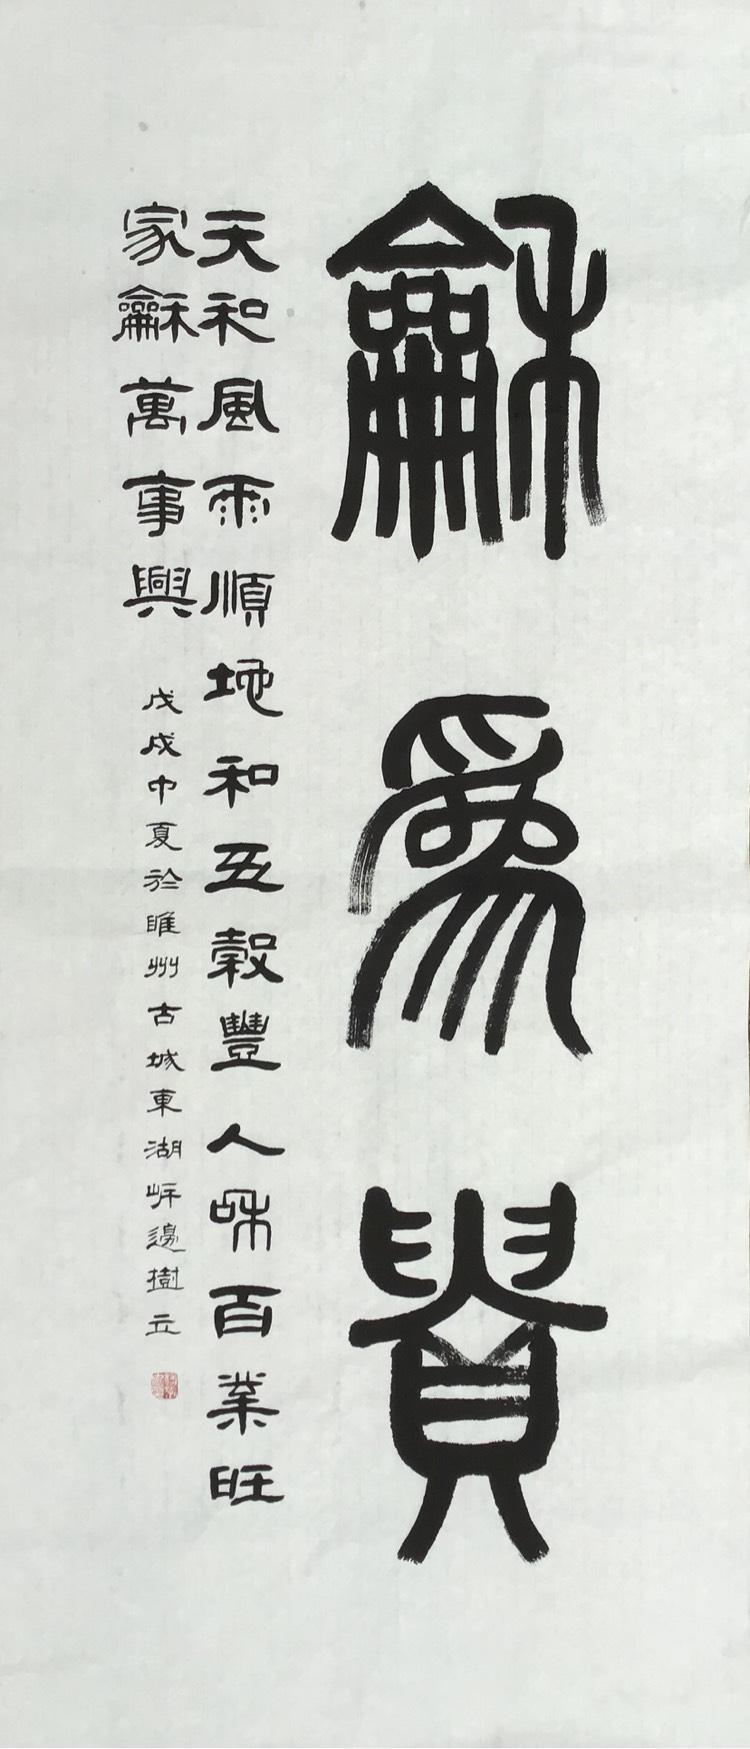 龢為貴
天和風雨順地和五穀豐人咊百業旺
家龢萬事興
戊戌中夏於睢州古城東湖岸邊樹立